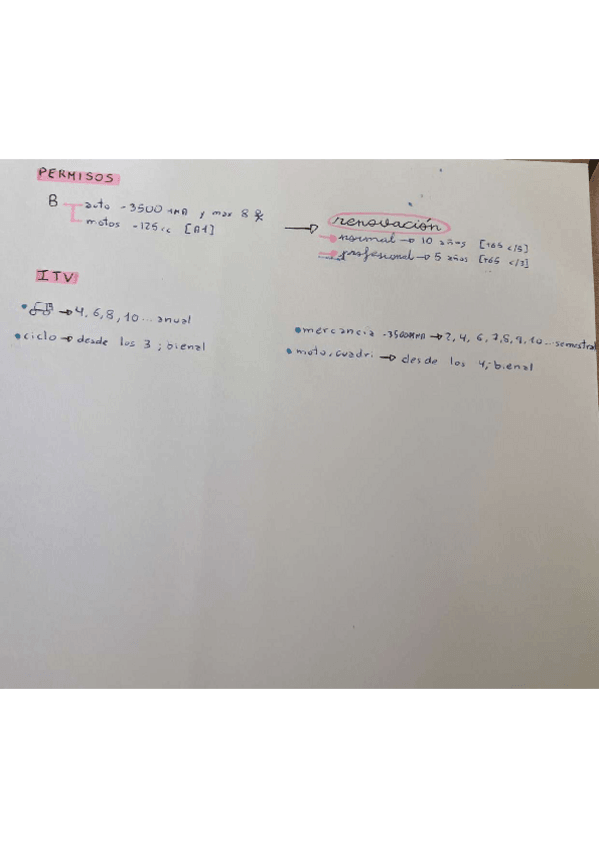 PERMISOS
B auto -3500 MMA y max 8
motos -125cc [A1]
→ renovación
→ normal → 10 años [+65 c/5]
→ profesional → 5 años [+65 c/3]
ITV
• → 4, 6, 8, 10... anual
• ciclo → desde los 3; bienal
• mercancia -3500MMA → 2, 4, 6, 7, 8, 9, 10... semestral
• moto, cuadri → desde los 4; bienal